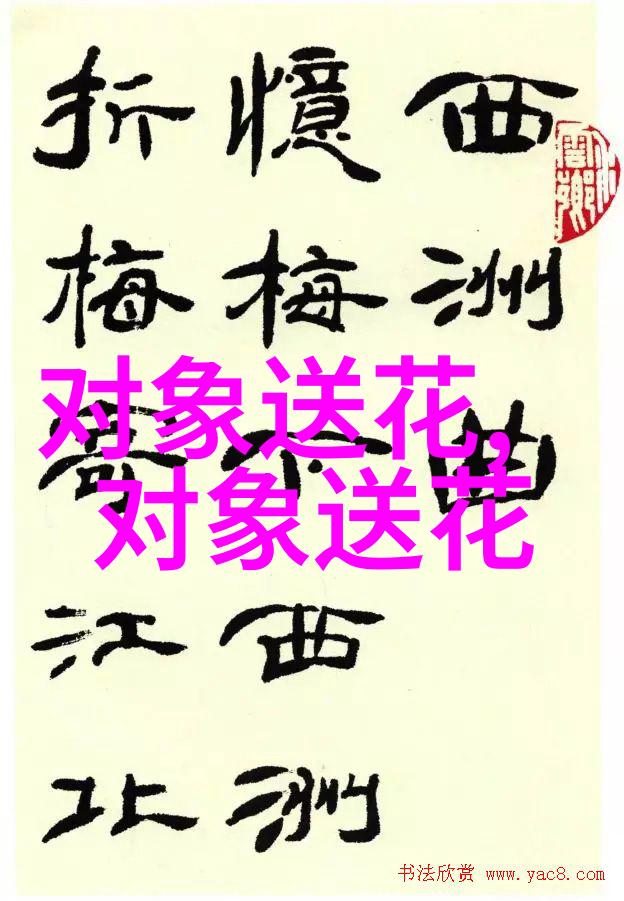 西洲曲
憶梅下西洲
折梅寄江北
对象送花,
对象送花
书法欣赏 www.yac8.com